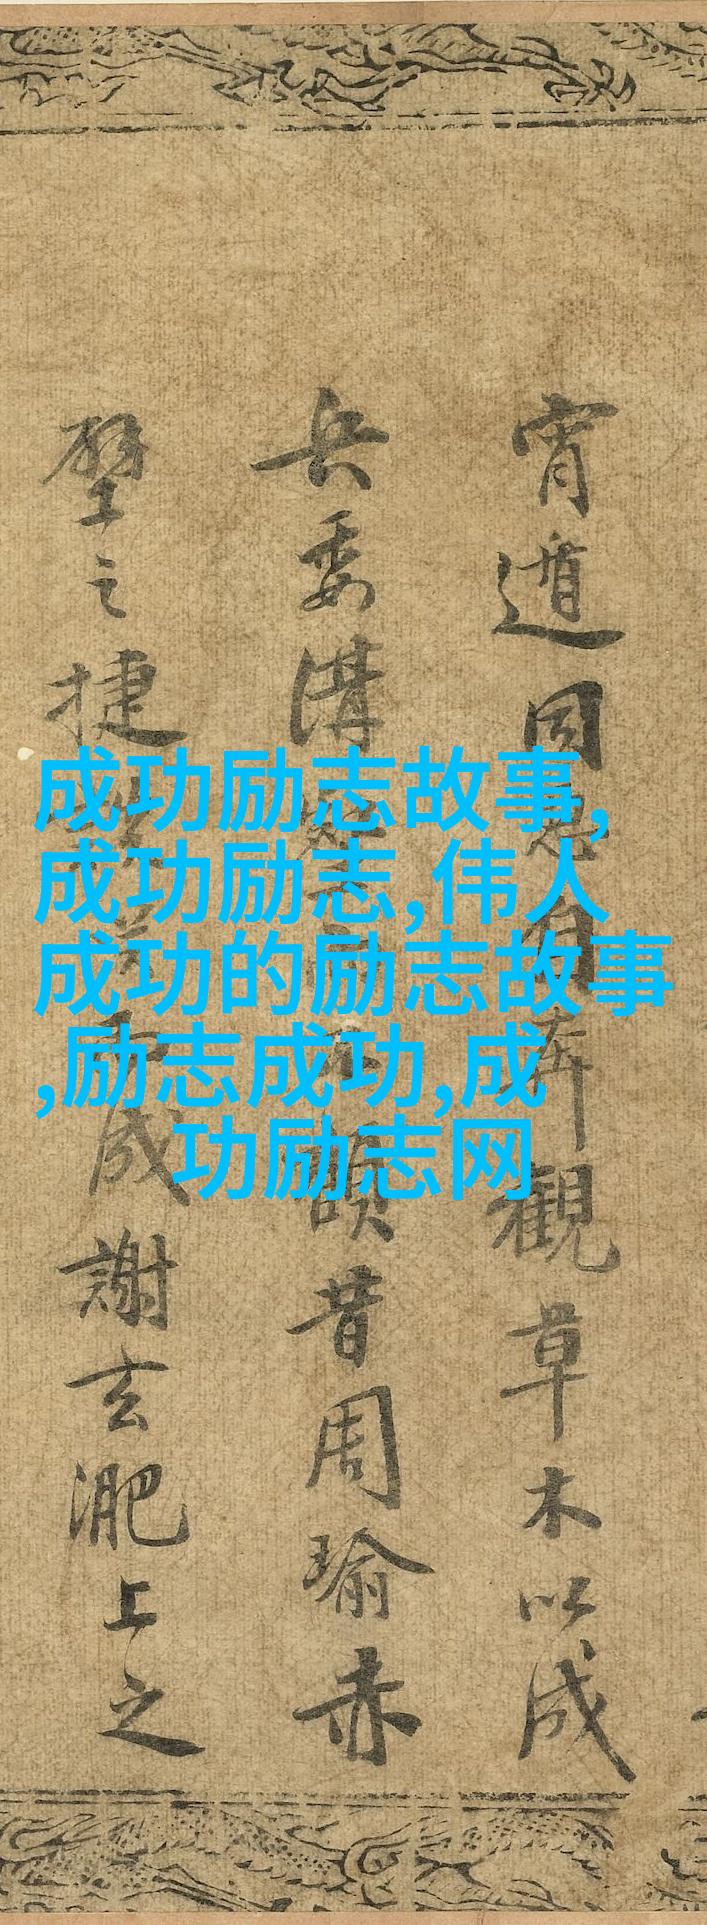 成功励志故事,
成功励志,伟人
成功的励志故事
,励志成功,成
功励志网
宵遁因自奔觀草木以成
兵委溝不顧昔周瑜赤
壁之捷成謝玄淝上之